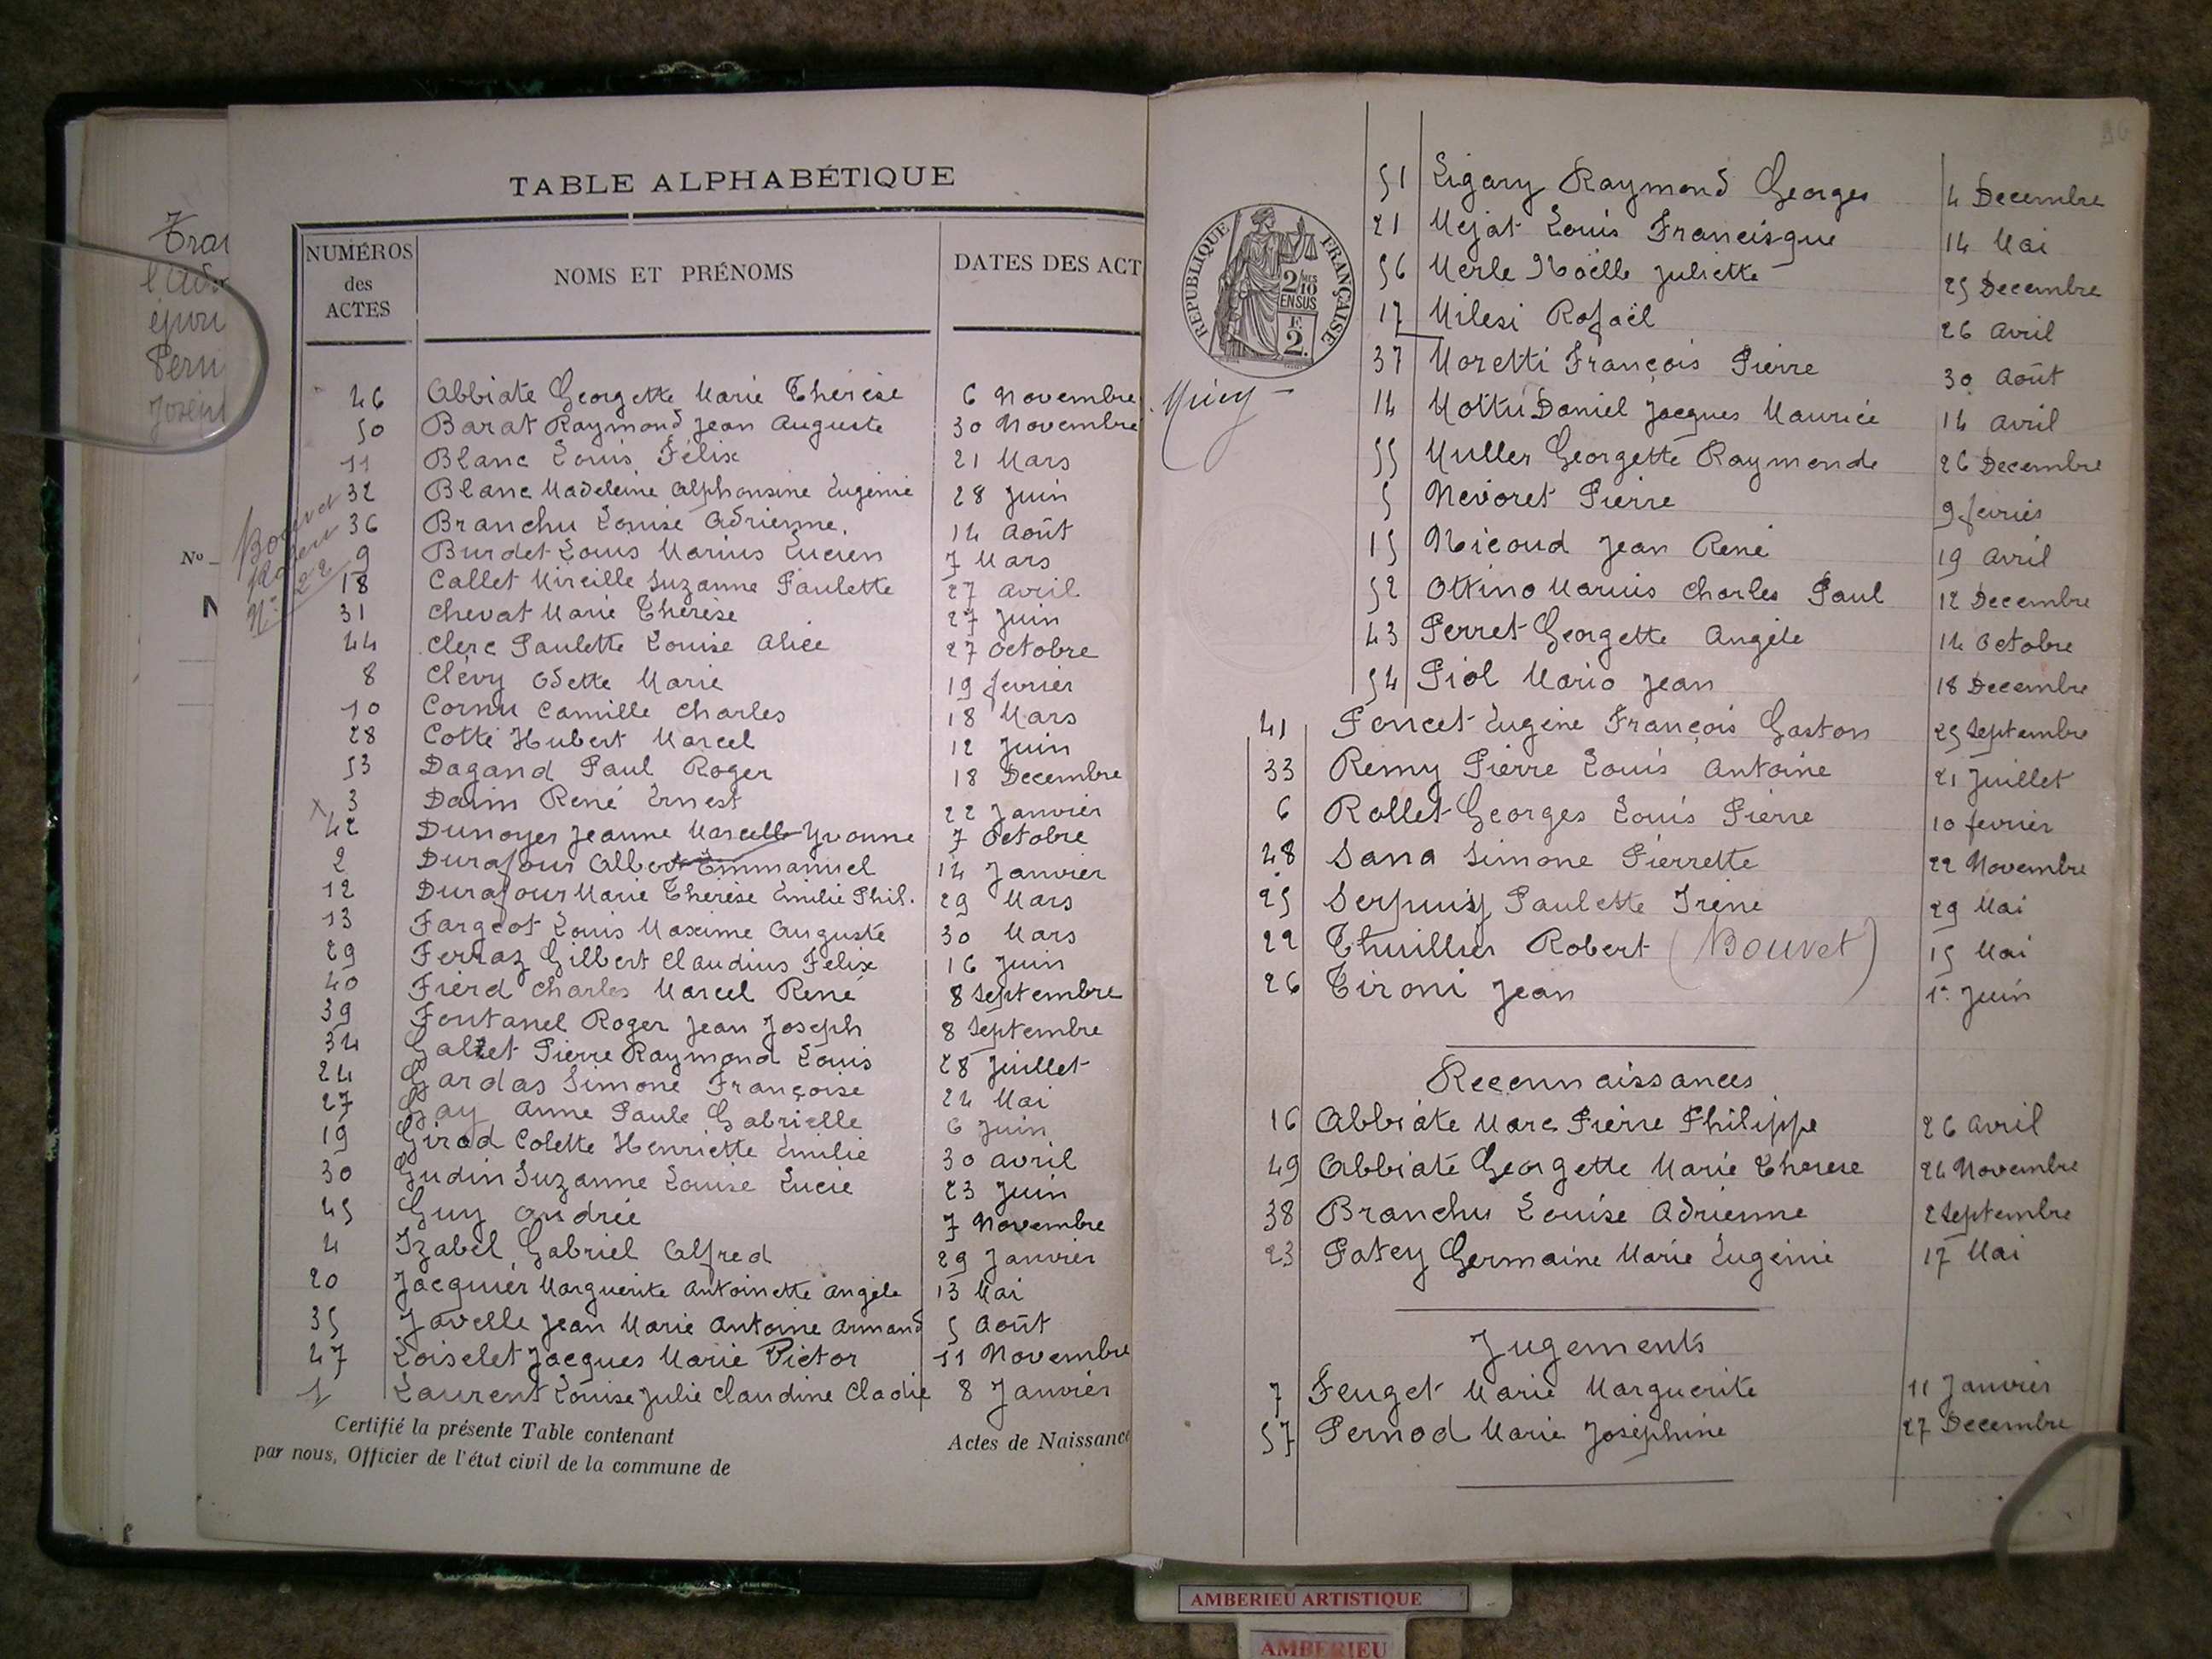 TABLE ALPHABÉTIQUE
NUMÉROS des ACTES
NOMS ET PRÉNOMS
DATES DES ACT
46 Abbiate Georgette Marie Thérèse 6 Novembre
50 Barat Raymond Jean Auguste 30 Novembre
11 Blanc Louis Félix 21 Mars
32 Blanc Madeleine Alphonsine Eugénie 28 Juin
36 Branchu Louise Adrienne. 14 Août
9 Burdet Louis Marius Lucien 7 Mars
18 Callet Mireille Suzanne Paulette 27 Avril
31 Chevat Marie Thérèse 27 Juin
44 Clerc Paulette Louise Alice 27 Octobre
8 Clévy Odette Marie 19 fevrier
10 Cornu Camille Charles 18 Mars
28 Cotte Hubert Marcel 12 Juin
53 Dagand Paul Roger 18 Decembre
3 Darin René Ernest 22 Janvier
42 Dunoyer Jeanne Marcelle Yvonne 7 Octobre
2 Durafour Albert Emmanuel 14 Janvier
12 Durafour Marie Thérèse Emilie Phil. 29 Mars
13 Fargeot Louis Maxime Auguste 30 Mars
29 Ferraz Gilbert Claudius Félix 16 Juin
40 Fierd Charles Marcel René 8 Septembre
39 Fontanel Roger Jean Joseph 8 Septembre
34 Gallet Pierre Raymond Louis 28 Juillet
24 Gardas Simone Françoise 24 Mai
27 Gay Anne Paule Gabrielle 6 Juin
19 Girod Colette Henriette Emilie 30 Avril
30 Gudin Suzanne Louise Lucie 23 Juin
45 Guy Andrée 7 Novembre
4 Izabel Gabriel Alfred 29 Janvier
20 Jacquier Marguerite Antoinette Angèle 13 Mai
35 Javelle Jean Marie Antoine Armand 5 Août
47 Loiselet Jacques Marie Victor 11 Novembre
1 Laurent Louise Julie Claudine Cladie 8 Janvier
Certifié la présente Table contenant
Actes de Naissance
par nous, Officier de l'état civil de la commune de
Bouvet
Robert
N° 22
Nº
RÉPUBLIQUE FRANÇAISE
2/10
EN SUS
2.
51 Ligary Raymond Georges 4 Decembre
21 Mejat Louis Francisque 14 Mai
56 Merle Noëlle Juliette 25 Decembre
17 Milesi Rafaël 26 Avril
37 Moretti François Pierre 30 Août
14 Mottu Daniel Jacques Maurice 14 Avril
55 Muller Georgette Raymonde 26 Decembre
5 Nevoret Pierre 9 fevrier
15 Nicoud Jean René 19 Avril
52 Ottino Marius Charles Paul 12 Decembre
43 Perret Georgette Angèle 14 Octobre
54 Piol Mario Jean 18 Decembre
41 Poncet Eugène François Gaston 25 Septembre
33 Remy Pierre Louis Antoine 21 Juillet
6 Rollet Georges Louis Pierre 10 fevrier
48 Sana Simone Pierrette 22 Novembre
25 Serpuis Paulette Irène 29 Mai
22 Thuillier Robert (Bouvet) 15 Mai
26 Tironi Jean 1er Juin
Reconnaissances
16 Abbiate Marc Pierre Philippe 26 Avril
49 Abbiate Georgette Marie Therese 24 Novembre
38 Branchu Louise Adrienne 2 Septembre
23 Patey Germaine Marie Eugénie 17 Mai
Jugements
7 Feuget Marie Marguerite 11 Janvier
57 Pernod Marie Joséphine 27 Decembre
AMBERIEU ARTISTIQUE
AMBERIEU